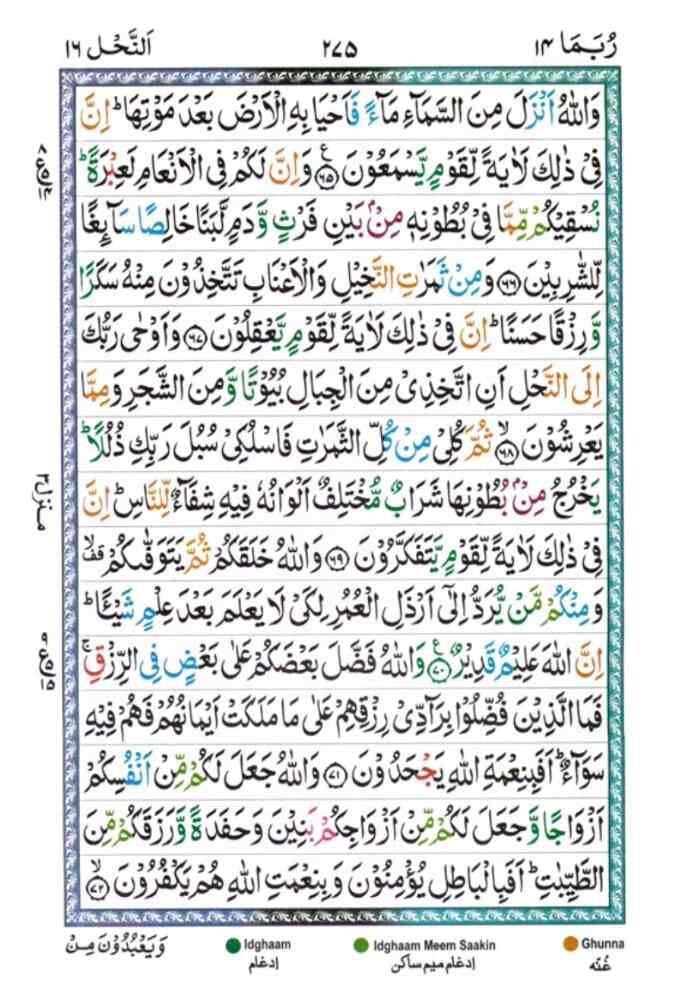 رُبَمَا ١٤
٢٧٥
اَلنَّحْل ١٦
وَاللّٰهُ اَنْزَلَ مِنَ السَّمَآءِ مَآءً فَاَحْيَا بِهِ الْاَرْضَ بَعْدَ مَوْتِهَا ؕ اِنَّ
فِیْ ذٰلِكَ لَاٰيَةً لِّقَوْمٍ يَّسْمَعُوْنَ ﴿٦٥﴾ ع وَاِنَّ لَكُمْ فِی الْاَنْعَامِ لَعِبْرَةً ؕ
نُسْقِيْكُمْ مِّمَّا فِیْ بُطُوْنِهٖ مِنْۢ بَيْنِ فَرْثٍ وَّدَمٍ لَّبَنًا خَالِصًا سَآئِغًا
لِّلشّٰرِبِيْنَ ﴿٦٦﴾ وَمِنْ ثَمَرٰتِ النَّخِيْلِ وَالْاَعْنَابِ تَتَّخِذُوْنَ مِنْهُ سَكَرًا
وَّرِزْقًا حَسَنًا ؕ اِنَّ فِیْ ذٰلِكَ لَاٰيَةً لِّقَوْمٍ يَّعْقِلُوْنَ ﴿٦٧﴾ وَاَوْحٰی رَبُّكَ
اِلَی النَّحْلِ اَنِ اتَّخِذِیْ مِنَ الْجِبَالِ بُيُوْتًا وَّمِنَ الشَّجَرِ وَمِمَّا
يَعْرِشُوْنَ ﴿٦٨﴾ ۙ ثُمَّ كُلِیْ مِنْ كُلِّ الثَّمَرٰتِ فَاسْلُكِیْ سُبُلَ رَبِّكِ ذُلُلًا ؕ
يَخْرُجُ مِنْۢ بُطُوْنِهَا شَرَابٌ مُّخْتَلِفٌ اَلْوَانُهٗ فِيْهِ شِفَآءٌ لِّلنَّاسِ ؕ اِنَّ
فِیْ ذٰلِكَ لَاٰيَةً لِّقَوْمٍ يَّتَفَكَّرُوْنَ ﴿٦٩﴾ وَاللّٰهُ خَلَقَكُمْ ثُمَّ يَتَوَفّٰىكُمْ ۙقف
وَمِنْكُمْ مَّنْ يُّرَدُّ اِلٰٓی اَرْذَلِ الْعُمُرِ لِكَیْ لَا يَعْلَمَ بَعْدَ عِلْمٍ شَيْـًٔا ؕ
اِنَّ اللّٰهَ عَلِيْمٌ قَدِيْرٌ ﴿٧٠﴾ ع وَاللّٰهُ فَضَّلَ بَعْضَكُمْ عَلٰی بَعْضٍ فِی الرِّزْقِ ۚ
فَمَا الَّذِيْنَ فُضِّلُوْا بِرَآدِّیْ رِزْقِهِمْ عَلٰی مَا مَلَكَتْ اَيْمَانُهُمْ فَهُمْ فِيْهِ
سَوَآءٌ ؕ اَفَبِنِعْمَةِ اللّٰهِ يَجْحَدُوْنَ ﴿٧١﴾ وَاللّٰهُ جَعَلَ لَكُمْ مِّنْ اَنْفُسِكُمْ
اَزْوَاجًا وَّجَعَلَ لَكُمْ مِّنْ اَزْوَاجِكُمْ بَنِيْنَ وَحَفَدَةً وَّرَزَقَكُمْ مِّنَ
الطَّيِّبٰتِ ؕ اَفَبِالْبَاطِلِ يُؤْمِنُوْنَ وَبِنِعْمَتِ اللّٰهِ هُمْ يَكْفُرُوْنَ ﴿٧٢﴾ ۙ
منزل٣
وَيَعْبُدُوْنَ مِنْ
Idghaam
ادغام
Idghaam Meem Saakin
ادغام میم ساکن
Ghunna
غُنّه